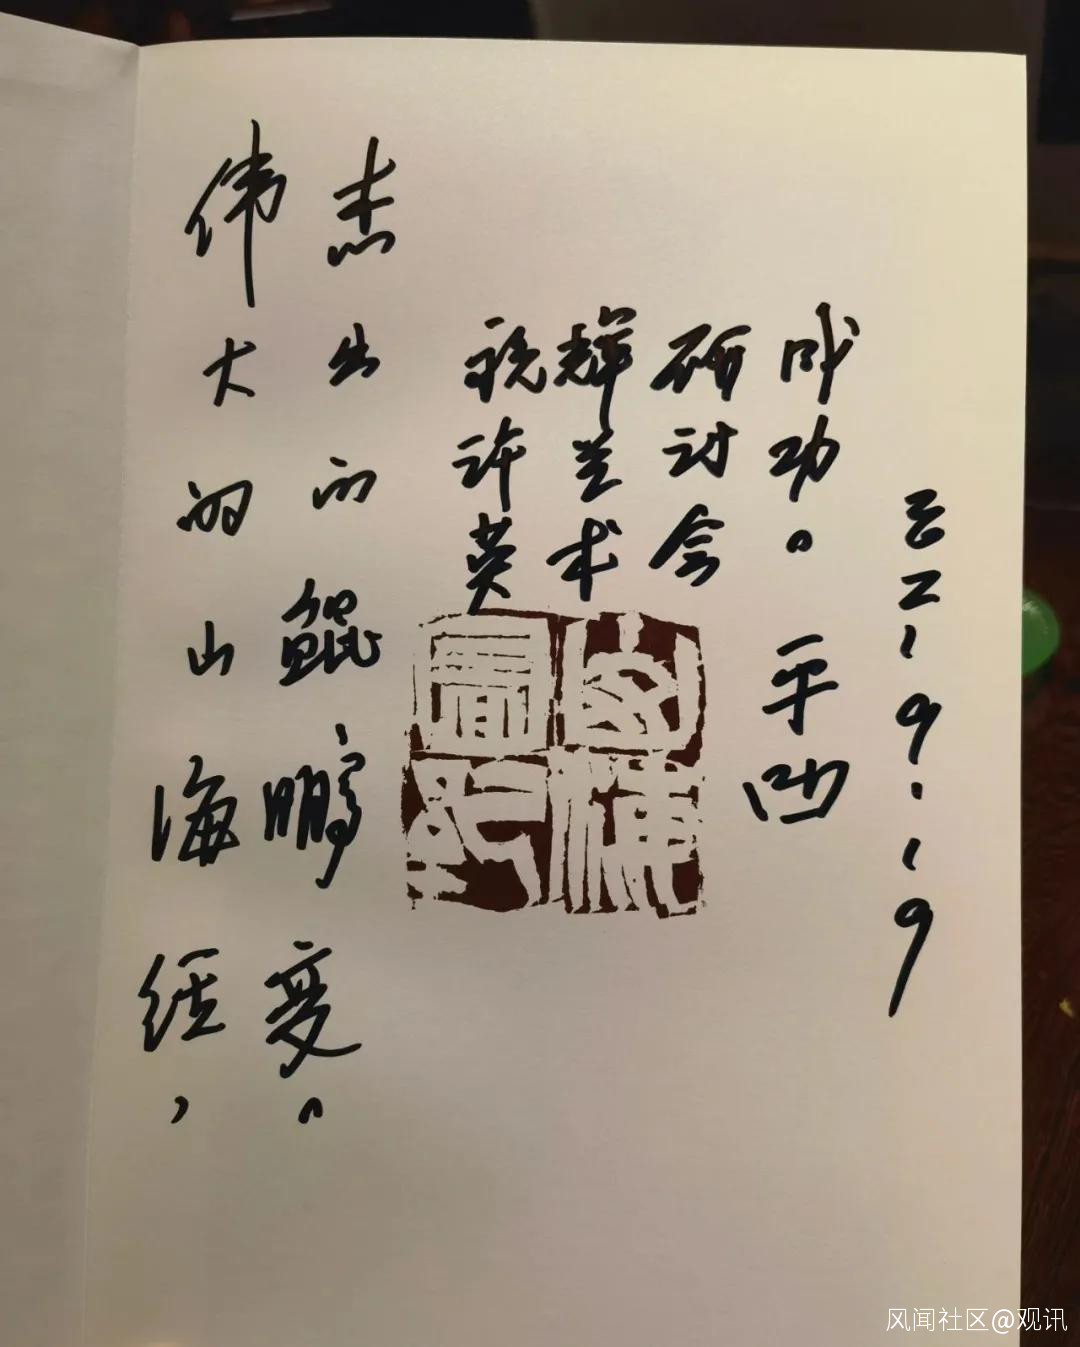 伟大的山海经，
杰出的鲲鹏变。
祝许英
辉艺术
研讨会
成功。
平凹
2021.9.19
风闻社区@观讯